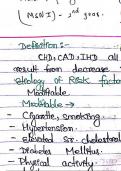 (MSN I) - 2nd year.
Definition :-
CHD, CAD, IHD all
result from decrease
Etiology of Risk factor
Modifiable.
Modifiable →
- Cigarette smoking.
- Hypertension.
- Elevated Sr. cholestrol
- Diabetes Mellitus.
- Physical activity.